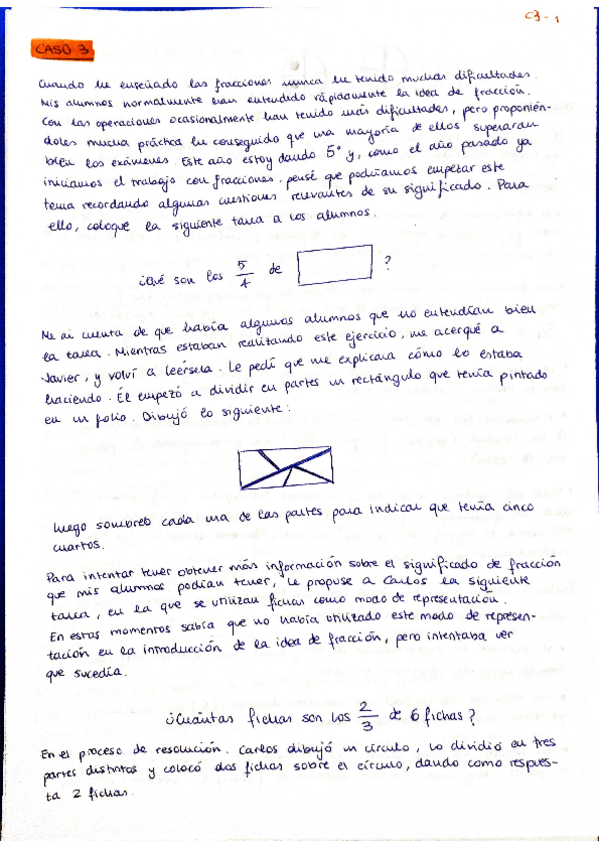 C3-1
CASO 3
Cuando he enseñado las fracciones nunca he tenido muchas dificultades.
Mis alumnos normalmente han entendido rápidamente la idea de fracción.
Con las operaciones ocasionalmente han tenido más dificultades, pero proponién-
doles mucha práctica he conseguido que una mayoría de ellos superaran
bien los exámenes. Este año estoy dando 5º y, como el año pasado ya
iniciamos el trabajo con fracciones, pensé que podríamos empezar este
tema recordando algunas cuestiones relevantes de su significado. Para
ello, coloqué la siguiente tarea a los alumnos.
¿Qué son los 5/4 de ?
Me di cuenta de que había algunos alumnos que no entendían bien
la tarea. Mientras estaban realizando este ejercicio, me acerqué a
Javier, y volví a leérsela. Le pedí que me explicara cómo lo estaba
haciendo. Él empezó a dividir en partes un rectángulo que tenía pintado
en un folio. Dibujó lo siguiente:
Luego sombreó cada una de las partes para indicar que tenía cinco
cuartos.
Para intentar tener obtener más información sobre el significado de fracción
que mis alumnos podían tener, le propuse a Carlos la siguiente
tarea, en la que se utilizan fichas como modo de representación.
En estos momentos sabía que no había utilizado este modo de represen-
tación en la introducción de la idea de fracción, pero intentaba ver
que sucedía.
¿Cuántas fichas son los 2/3 de 6 fichas?
En el proceso de resolución. Carlos dibujó un círculo, lo dividió en tres
partes distintas y colocó dos fichas sobre el círculo, dando como respues-
ta 2 fichas.